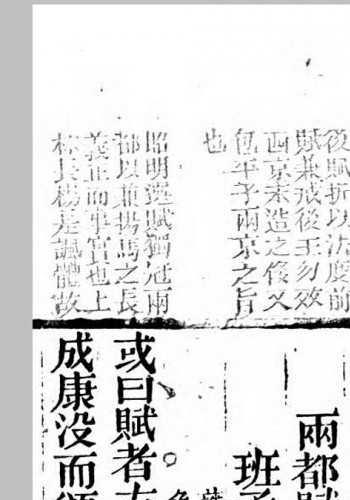 後賦折以法度前
賦兼戒後王勿效
西京末造之侈又
包平子兩京之旨
也
昭明選賦獨冠兩
都以兼揚馬之長
義正而事實也上
林長楊是諷體故
兩都賦
班孟
或曰賦者古
成康没而頌